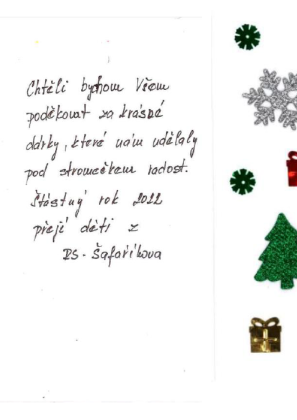 Chtěli bychom Všem
poděkovat za krásné
dárky, které nám udělaly
pod stromečkem radost.
Šťastný rok 2022
přejí děti z
DS - Šafaříkova